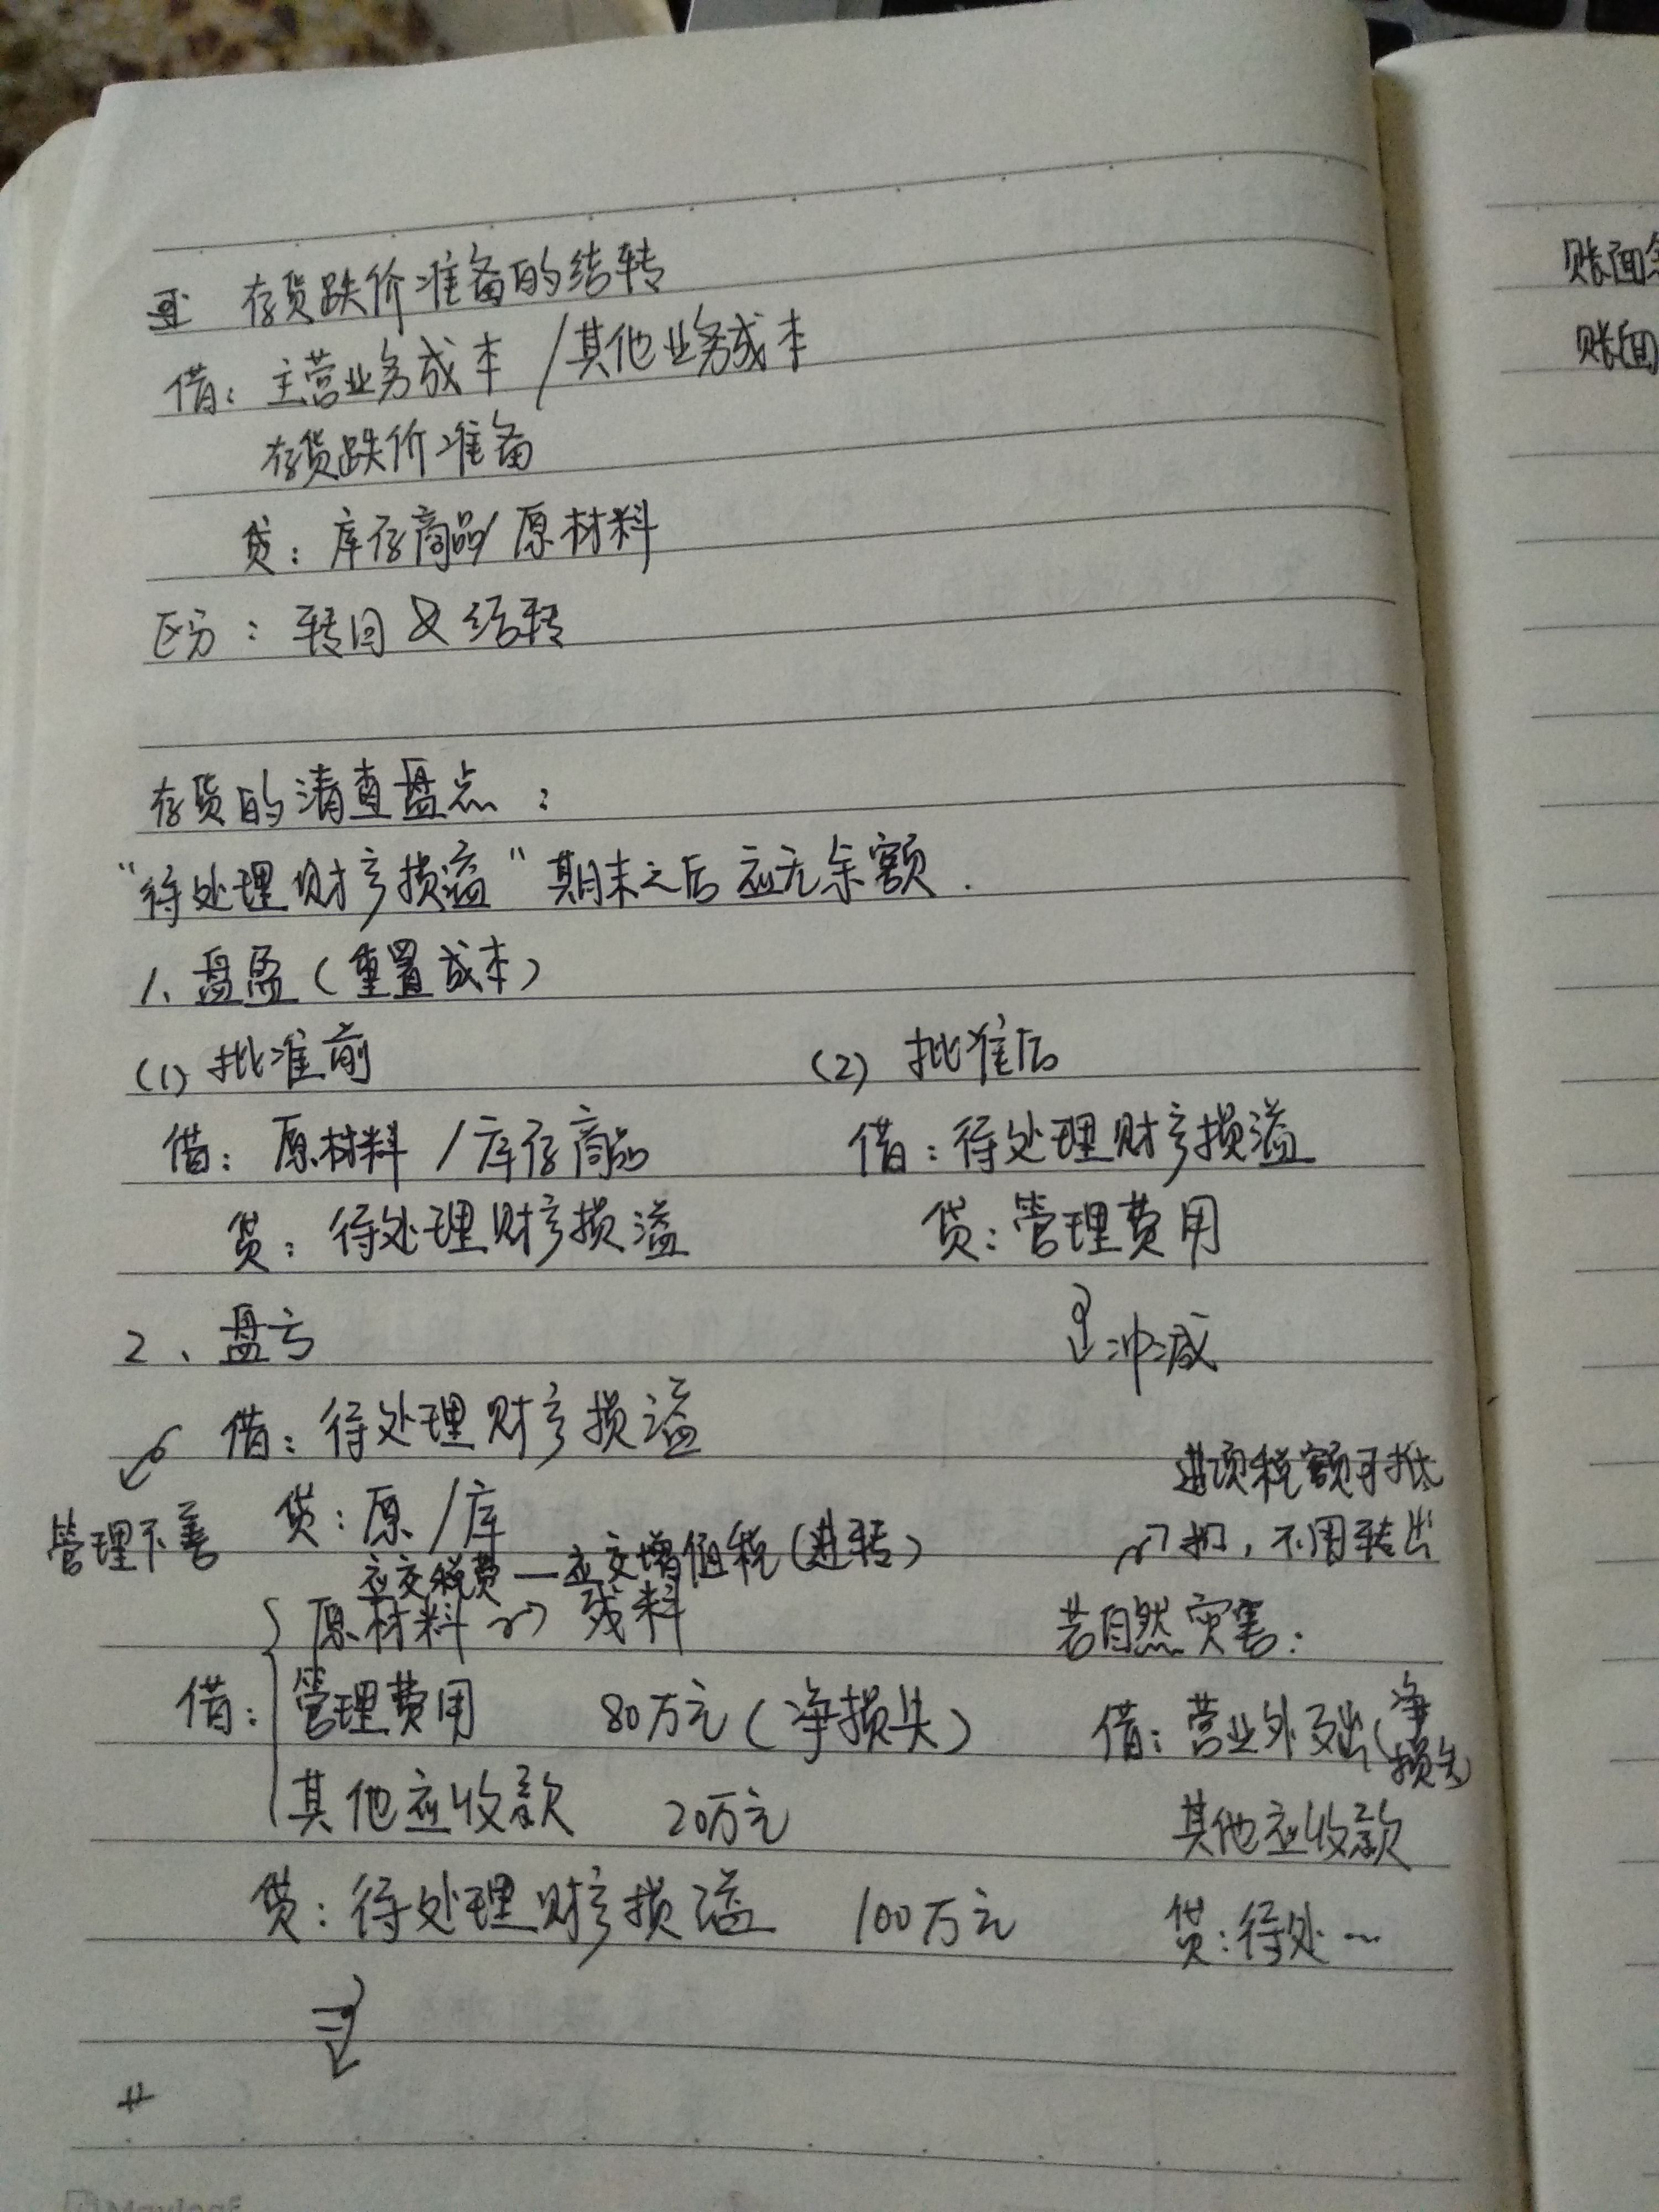 存货跌价准备的结转
借：主营业务成本 /其他业务成本
存货跌价准备
贷：库存商品/原材料
区分：转回 & 结转
存货的清查盘点：
“待处理财产损溢”期末之后应无余额.
1、盘盈（重置成本）
(1) 批准前 (2) 批准后
借：原材料 /库存商品 借：待处理财产损溢
贷：待处理财产损溢 贷：管理费用
2、盘亏 冲减
借：待处理财产损溢
进项税额可抵
管理不善 贷：原/库
扣，不用转出
应交税费—应交增值税(进转)
原材料 残料 若自然灾害：
借：管理费用 80万元（净损失） 借：营业外支出(净损失)
其他应收款 20万元 其他应收款
贷：待处理财产损溢 100万元 贷：待处…
账面
账面